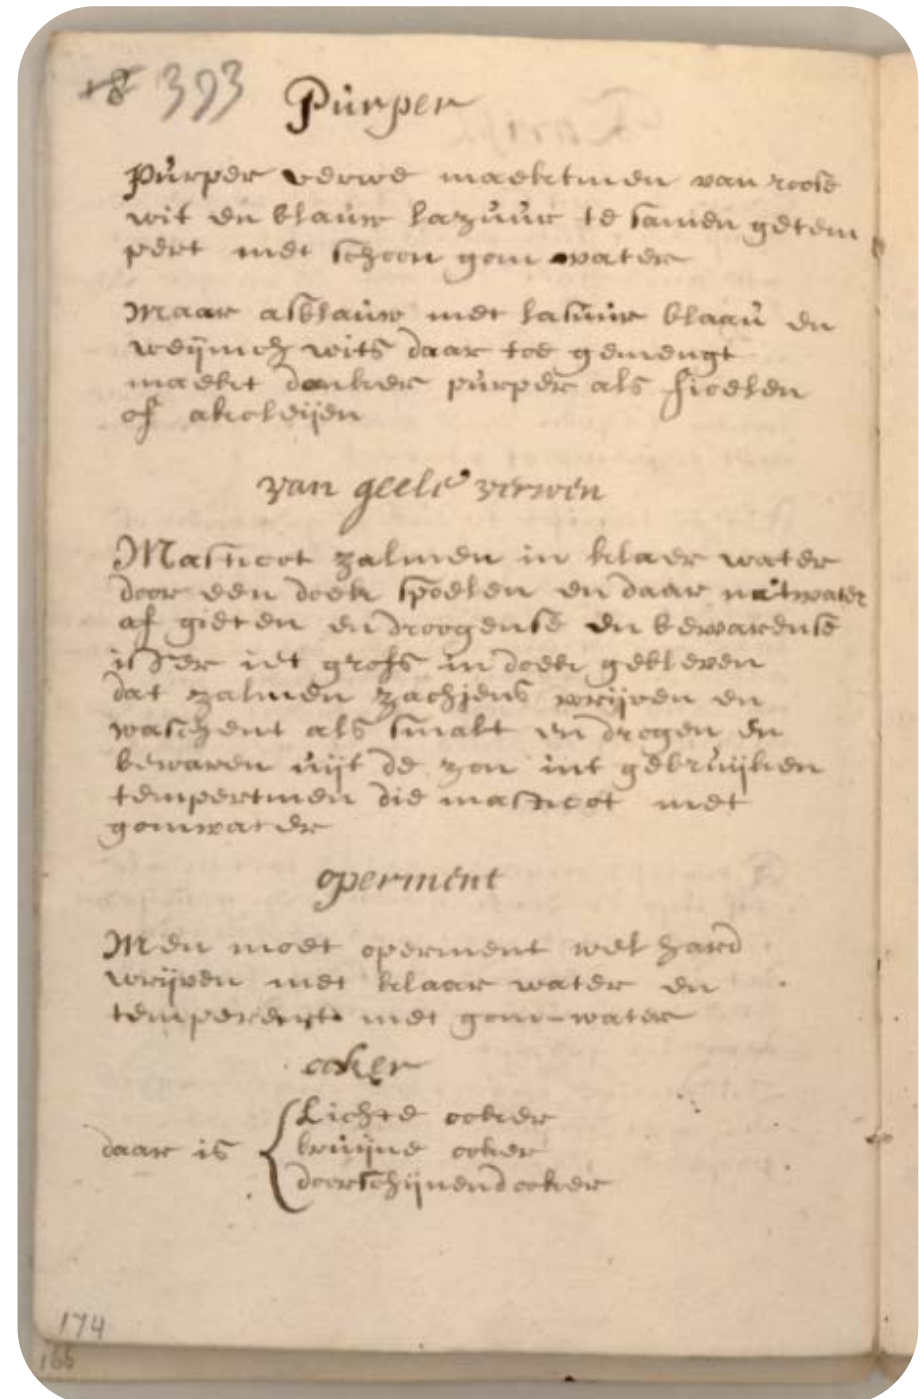 393
Pürper
Pürper verwe maektmen van roose
wit en blaüw lazüür te samen getem
pert met schoon gom water
Maar asblaüw met lasüür blaaü en
weijnich wits daar toe gemengt
maekt donker pürper als fioelen
of akoleijen
van geele verwen
Masticot zalmen in klaer water
door een doek spoelen en daar natwater
af gieten en droogense en bewarense
isser iet grofs in doek gebleven
dat zalmen zachjens wrijven en
waschent als smalt en drogen en
bewaren üijt de zon int gebrüijken
tempertmen die masticot met
gomwater
operment
Men moet operment wel hard
wrijven met klaar water en
temperent met gom-water
ooker
daar is
Lichte ooker
brüijne ooker
doorschijnend ooker
174
166